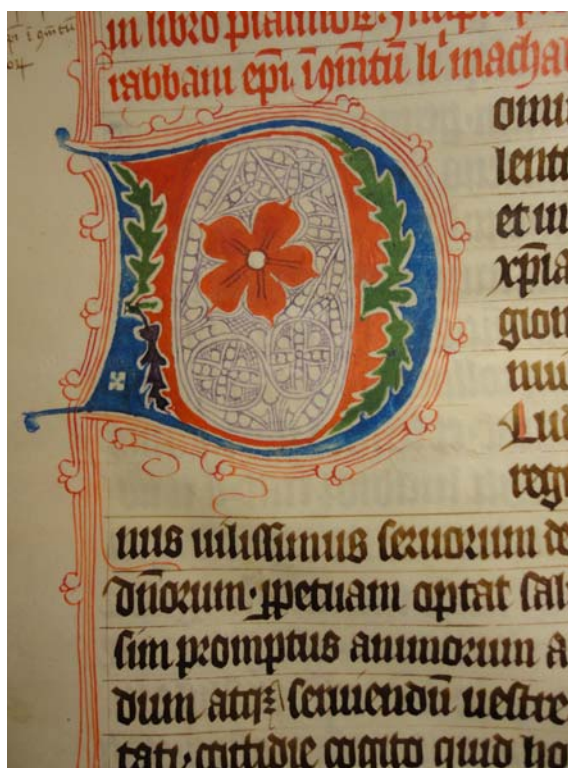 in libro
rabbani ep̄i
D omi
lenti
et in
xp̄ia
gion
Lud
regi
nus uilissimus seruorum de
dn̄orum· ꝑpetuam optat sal
sim promptus animorum a
dium atqꝫ seruiendū uestre
tati· cottidie cogito quid ho